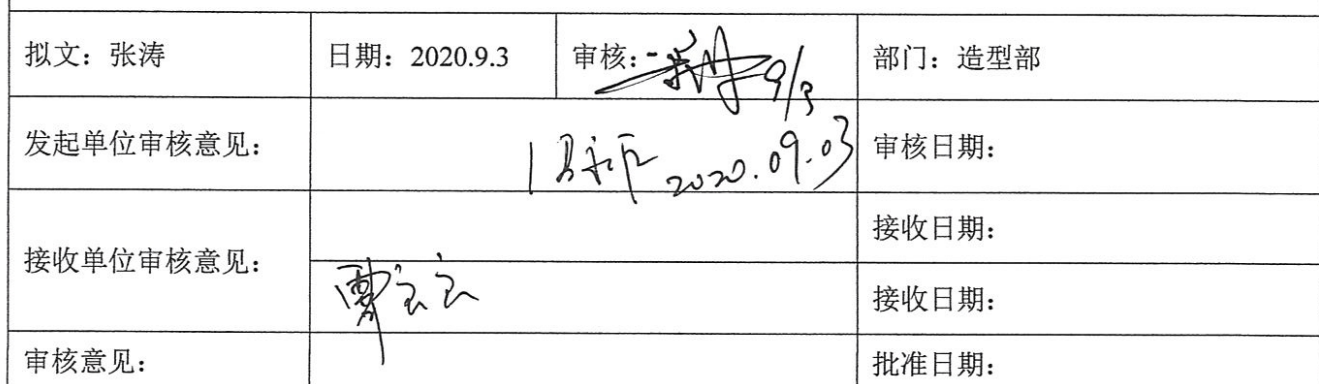 拟文：张涛 日期：2020.9.3 审核： 9/3 部门：造型部
发起单位审核意见： 2020.09.03 审核日期：
接收日期：
接收单位审核意见：
接收日期：
审核意见： 批准日期：